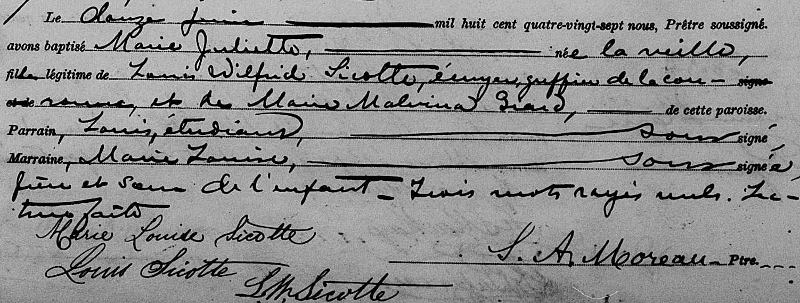 Le douze juin mil huit cent quatre-vingt-sept nous, Prêtre soussigné.
avons baptisé Marie Juliette, née la veille,
fille légitime de Louis Wilfrid Sicotte, écuyer, greffier de la cou- signé
ronne, et de Marie Malvina Giard, de cette paroisse.
Parrain, Louis, étudiant, sous signé
Marraine, Marie Louise, sous signée,
frère et sœur de l'enfant - Trois mots rayés nuls. Lec-
ture faite
Marie Louise Sicotte
S. A. Moreau - Ptre.
Louis Sicotte
L.W. Sicotte